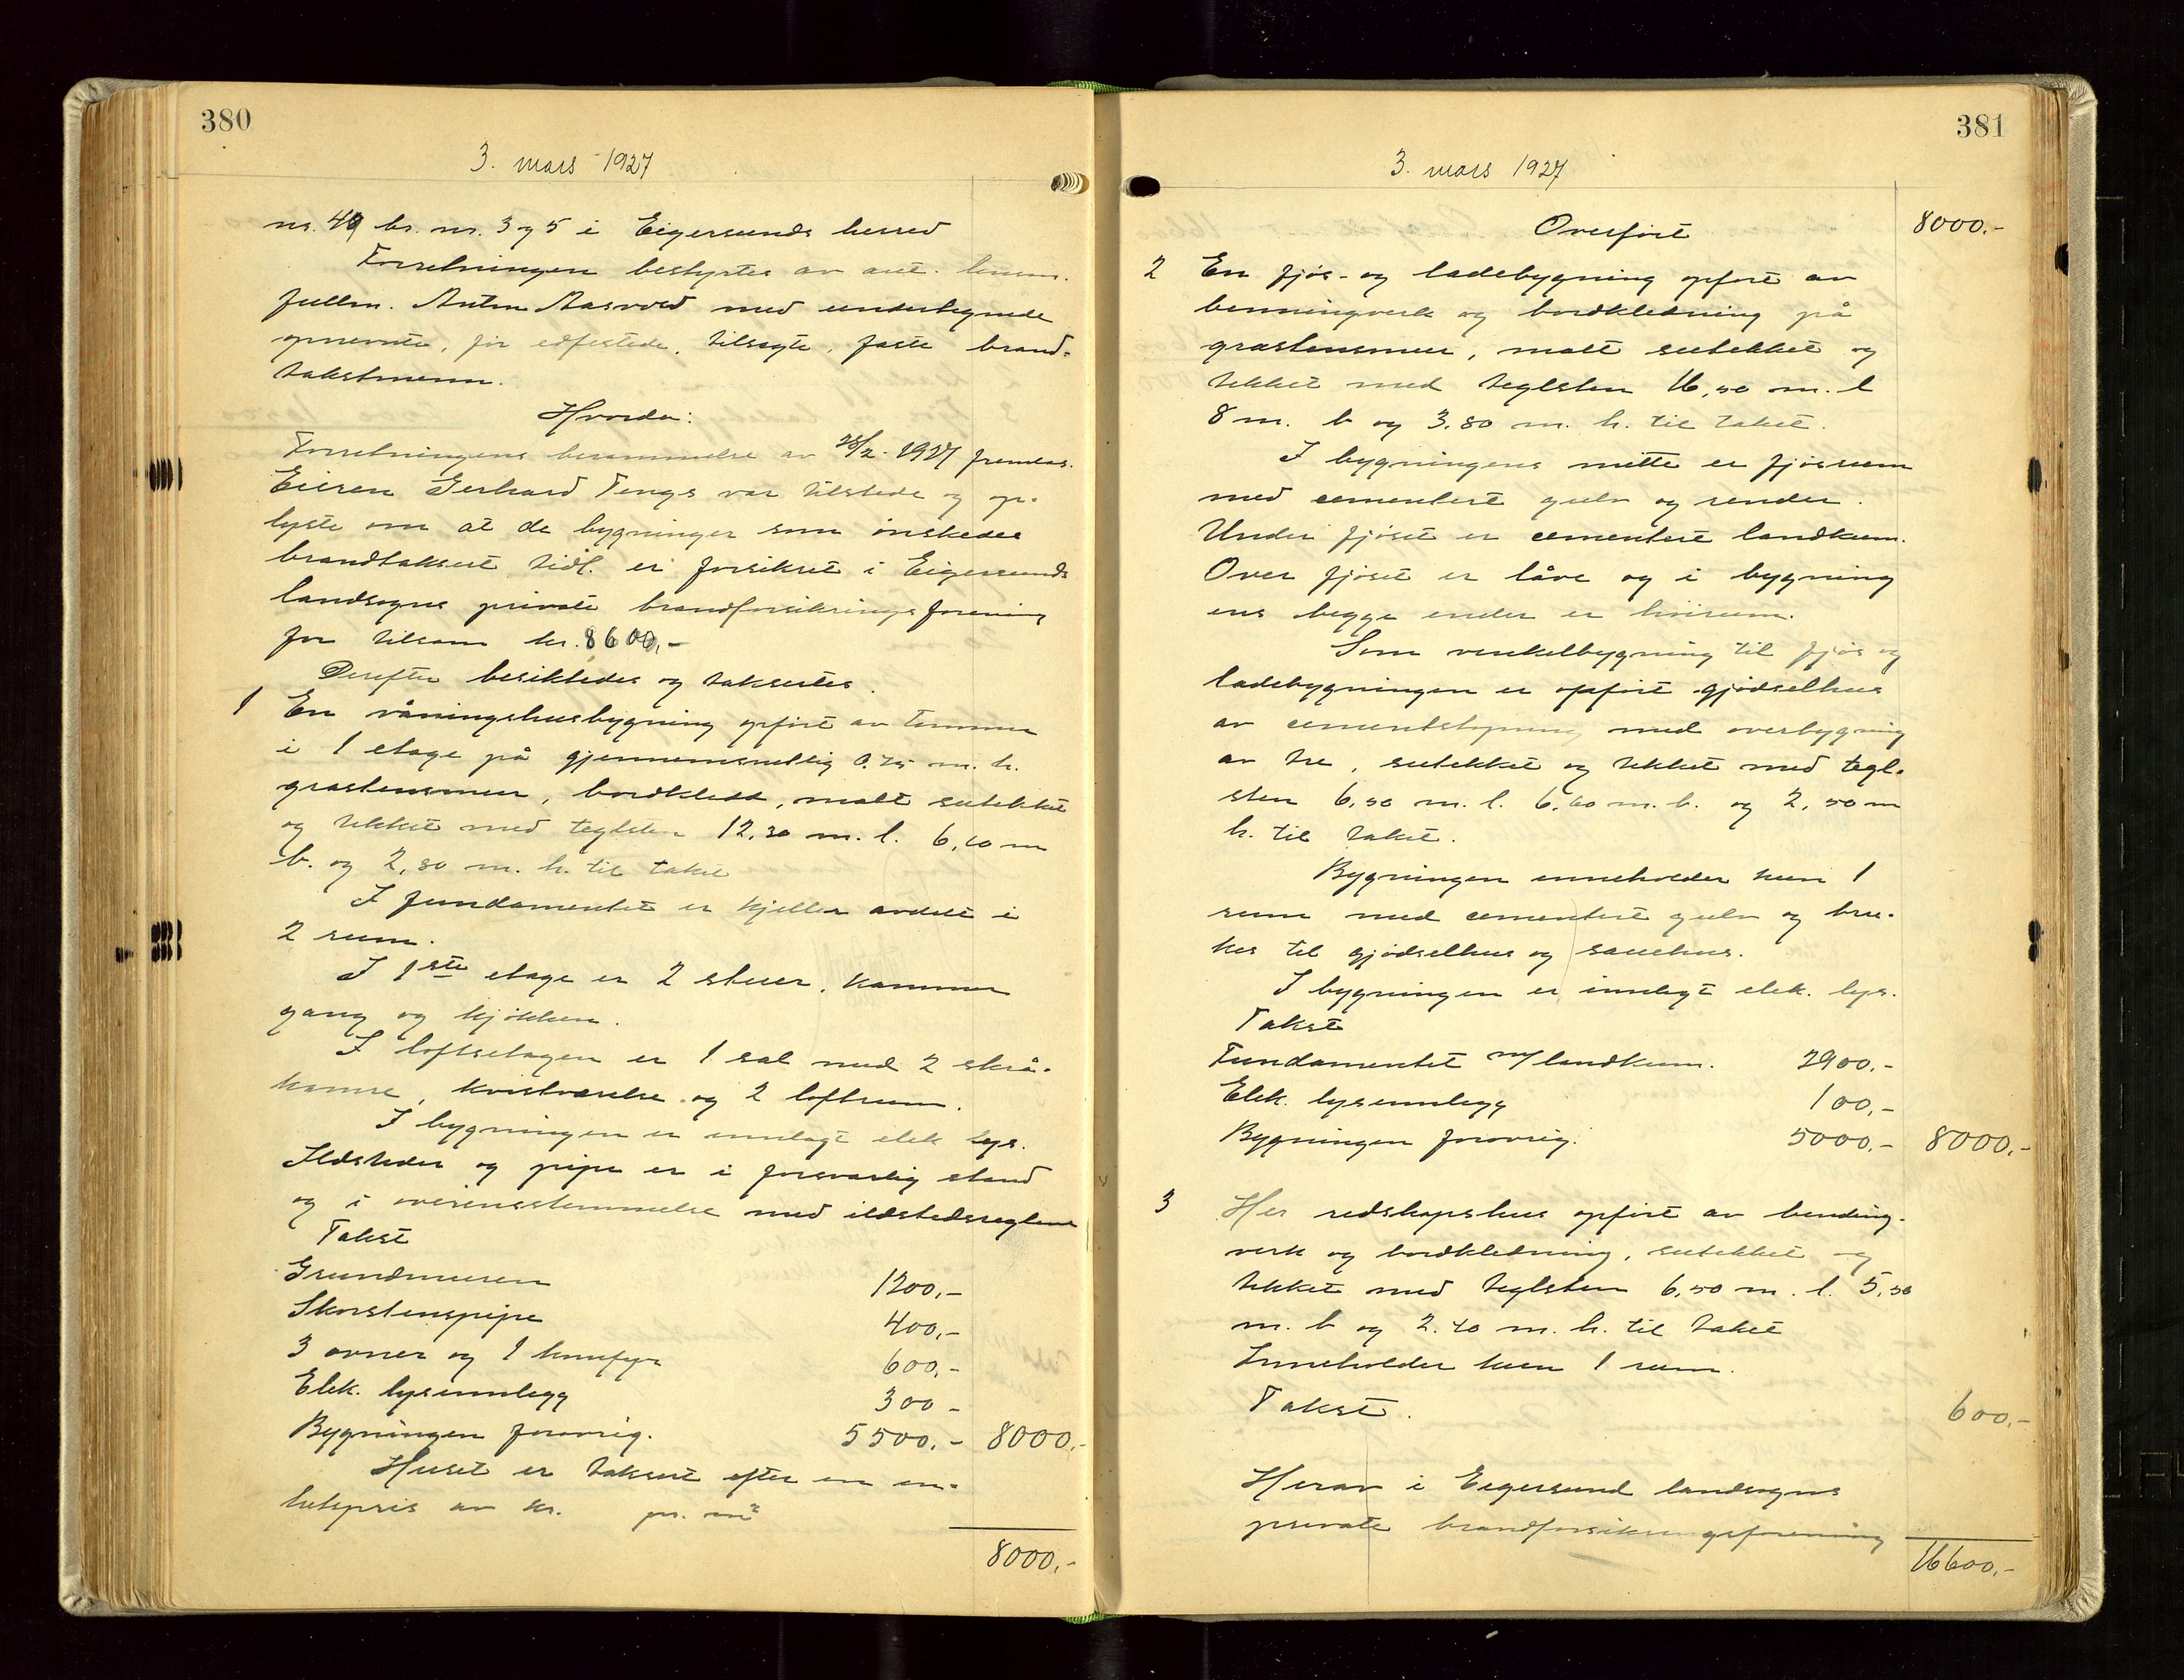 380
3. mars 1927
nr. 49 br. nr. 3 og 5 i Eigersunds herred
Forretningen bestyrtes av aut. lensm.
fullm. Anton Aasvold med undertegnede
opnevnte, før edfestede, tilsagte, faste brand-
takstmenn.
Hvorda:
Forretningens berammelse av 28/2-1927 fremlas.
Eieren Gerhard Tengs var tilstede og op-
lyste om at de bygninger som ønskedes
brandtaksert tidl. er forsikret i Eigersunds
landsogns private brandforsikringsforening
for tilsam kr. 8600,-
Derefter besiktedes og taksertes.
1 En våningshusbygning opført av tømmer
i 1 etage på gjennemsnittlig 0.75 m. h.
gråstensmur, bordkledd, malt sutekket
og tekket med teglsten 12,30 m. l. 6,10 m
b. og 2,80 m. h. til taket
I fundamentet er kjeller avdelt i
2 rum.
I 1ste etage er 2 stuer, kammer
gang og kjøkken.
I loftsetagen er 1 sal med 2 skrå-
kamre, kvistværelse og 2 loftrum.
I bygningen er innlagt elek lys.
Ildsteder og pipe er i forsvarlig stand
og i overensstemmelse med ildstedsreglene
Takst
Grundmuren 1200,-
Skorstenspipe 400,-
3 ovner og 1 komfyr 600,-
Elek. lysinnlegg 300 -
Bygningen forøvrig. 5500.- 8000,-
Huset er taksert efter en en-
hetspris av kr. pr. m²
8000,-
381
3. mars 1927
Overført 8000.-
2 En fjøs- og ladebygning opført av
benningverk og bordkledning på
gråstensmur, malt sutekket og
tekket med teglsten 16,50 m. l
8 m. b og 3,80 m. h. til taket.
I bygningens mitte er fjøsrum
med cementert gulv og render.
Under fjøset er cementert landkum.
Over fjøset er låve og i bygning
ens begge ender er høirum.
Som vinkelbygning til fjøs og
ladebygningen er opført gjødselhus
av cementstøpning med overbygning
av tre, sutekket og tekket med tegl-
sten 6,50 m. l. 6,60 m. b. og 2,50 m
h. til taket.
Bygningen inneholder kun 1
rum med cementert gulv og bru-
kes til gjødselhus og sauehus.
I bygningen er innlagt elek. lys.
Takst
Fundamentet m/landkum. 2900.-
Elek. lysinnlegg 100,-
Bygningen forøvrig. 5000.- 8000,-
3 Her redskapshus opført av bending-
verk og bordkledning, sutekket og
tekket med teglsten 6,50 m. l. 5,50
m. b og 2.40 m. h. til taket
Inneholder kun 1 rum.
Takst. 600,-
Herav i Eigersund landsogns
private brandforsikringsforening
16600,-